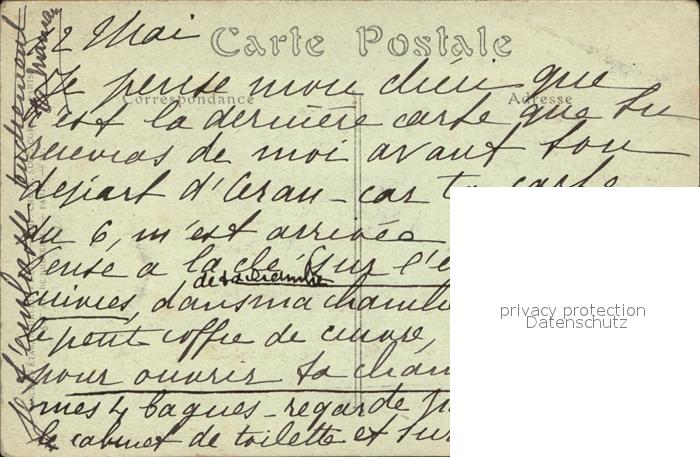 2 Mai
Carte Postale
Correspondance
Adresse
Je pense mon chéri que
c'est la dernière carte que tu
recevras de moi avant ton
départ d'Oran - car ta carte
du 6, m'est arrivée
Pense a la clé sur l'e
de ta chambre
cuivres, dans ma chambre
le petit coffre de cuivre,
pour ouvrir ta cham
mes 4 bagues - regarde
le cabinet de toilette et sur
Je t'embrasse tendrement
privacy protection
Datenschutz